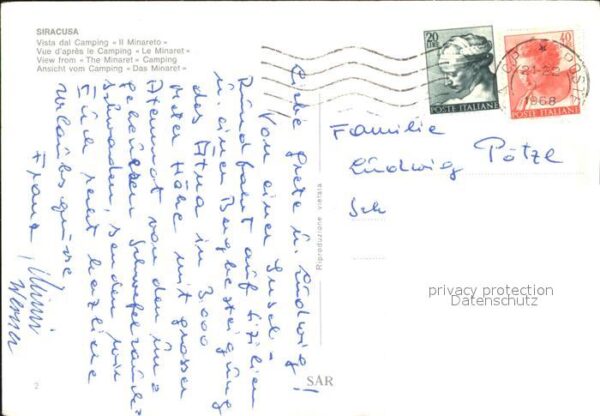 SIRACUSA
Vista dal Camping « Il Minareto »
Vue d'après le Camping « Le Minaret »
View from « The Minaret » Camping
Ansicht vom Camping « Das Minaret »
Liebe Grete u. Ludwig!
Von einer Insel-
Rundfahrt auf Sizilien
u. einer Bergbesteigung
des Ätna in 3.000
Meter Höhe mit grosser
Atemnot von den
Schwefel
Schwaden, senden wir
Euch recht herzliche
Urlaubsgrüsse
Franz,
Werner
2
Riproduzione vietata
SAR
20
LIRE
POSTE ITALIANE
40
POSTE ITALIANE
21-22
1968
Familie
Ludwig Pötzl
privacy protection
Datenschutz